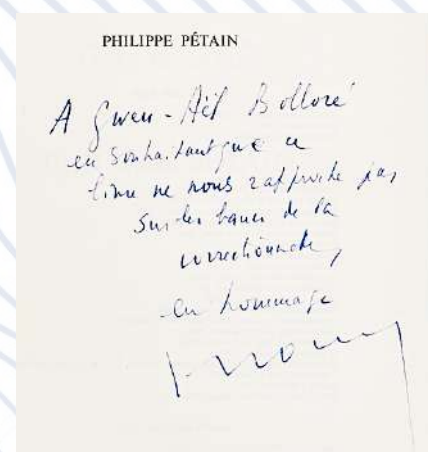 PHILIPPE PÉTAIN
A Gwen-Aël Bolloré
en souhaitant que ce
livre ne nous rapproche pas
sur les bancs de la
correctionnelle,
en hommage